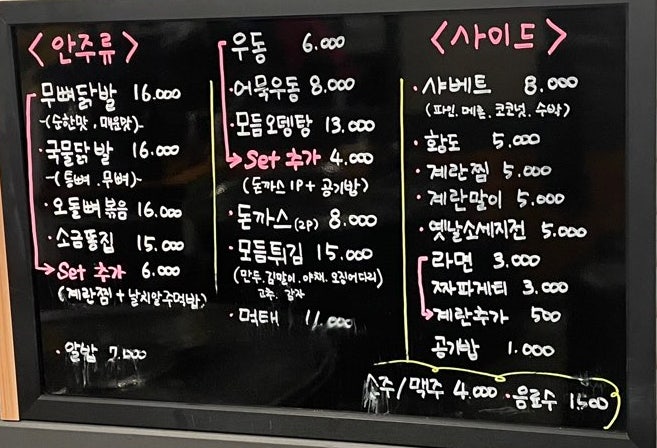 <안주류>
무뼈닭발 16.000
-(순한맛, 매운맛)-
·국물닭발 16.000
-(통뼈. 무뼈)-
·오돌뼈볶음 16.000
·소금똥집 15.000
Set 추가 6.000
(계란찜 + 날치알주먹밥)
·알밥 7.000
우동 6.000
·어묵우동 8.000
·모듬오뎅탕 13.000
Set 추가 4.000
(돈까스 1P + 공기밥)
·돈까스(2P) 8.000
·모듬튀김 15.000
(만두.김말이.야채.오징어다리)
고추. 감자
·먹태 11.000
<사이드>
·샤베트 8.000
(파인. 메론. 코코넛. 수박)
·황도 5.000
·계란찜 5.000
·계란말이 5.000
·옛날소세지전 5.000
라면 3.000
짜파게티 3.000
계란추가 500
공기밥 1.000
소주/맥주 4.000 ·음료수 1500